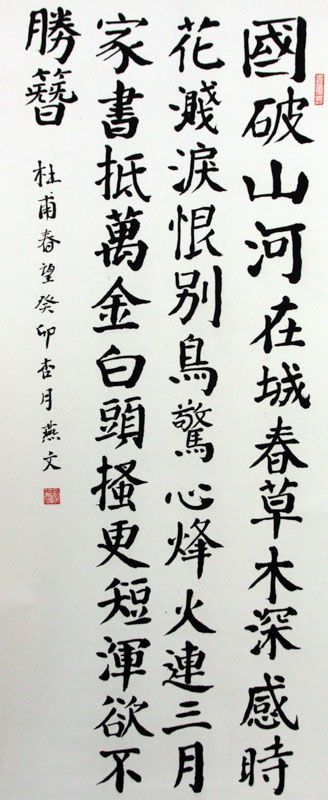 國破山河在城春草木深感時
花濺淚恨别鳥驚心烽火連三月
家書抵萬金白頭搔更短渾欲不
勝簪
杜甫春望癸卯杏月燕文